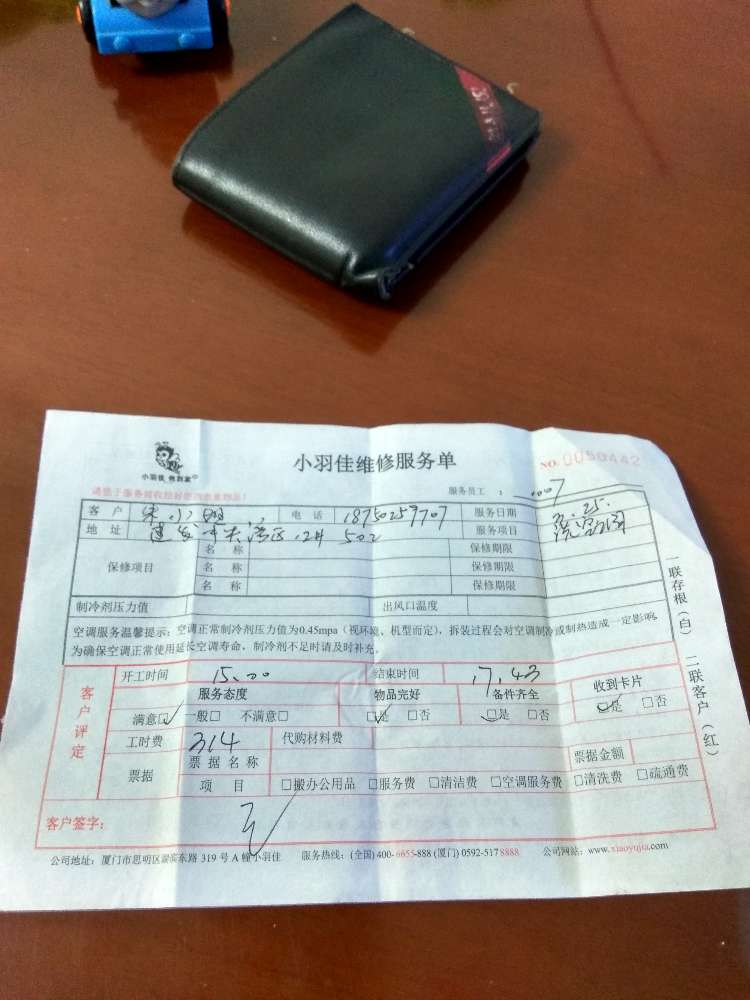 小羽佳维修服务单
NO. 0050442
服务员工：
客户 电话 18750259707 服务日期
地址 502 服务项目
保修项目 名称 保修期限
名称 保修期限
名称 保修期限
制冷剂压力值 出风口温度
空调服务温馨提示：空调正常制冷剂压力值为0.45mpa（视环境、机型而定），拆装过程会对空调制冷或制热造成一定影响，
为确保空调正常使用延长空调寿命，制冷剂不足时请及时补充。
一联存根（白） 二联客户（红）
客户评定
开工时间 15.00 结束时间 17.43
服务态度 物品完好 备件齐全 收到卡片
满意□ 一般□ 不满意□ □是 □否 □是 □否 □是 □否
工时费 314 代购材料费
票据 票据名称 票据金额
项目 □搬办公用品 □服务费 □清洁费 □空调服务费 □清洗费 □疏通费
客户签字：
公司地址：厦门市思明区 东路 319 号 A 幢小羽佳 服务热线：(全国) 400-6655-888 (厦门) 0592-5178888 公司网站：www.xiaoyujia.com